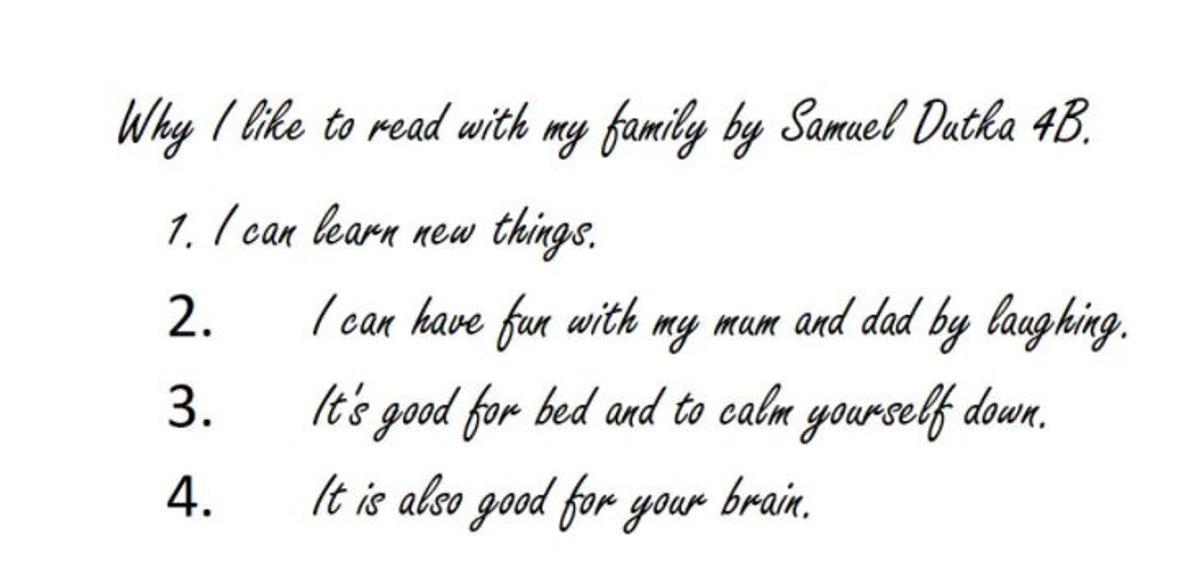 Why I like to read with my family by Samuel Dutka 4B.
1. I can learn new things.
2. I can have fun with my mum and dad by laughing.
3. It's good for bed and to calm yourself down.
4. It is also good for your brain.